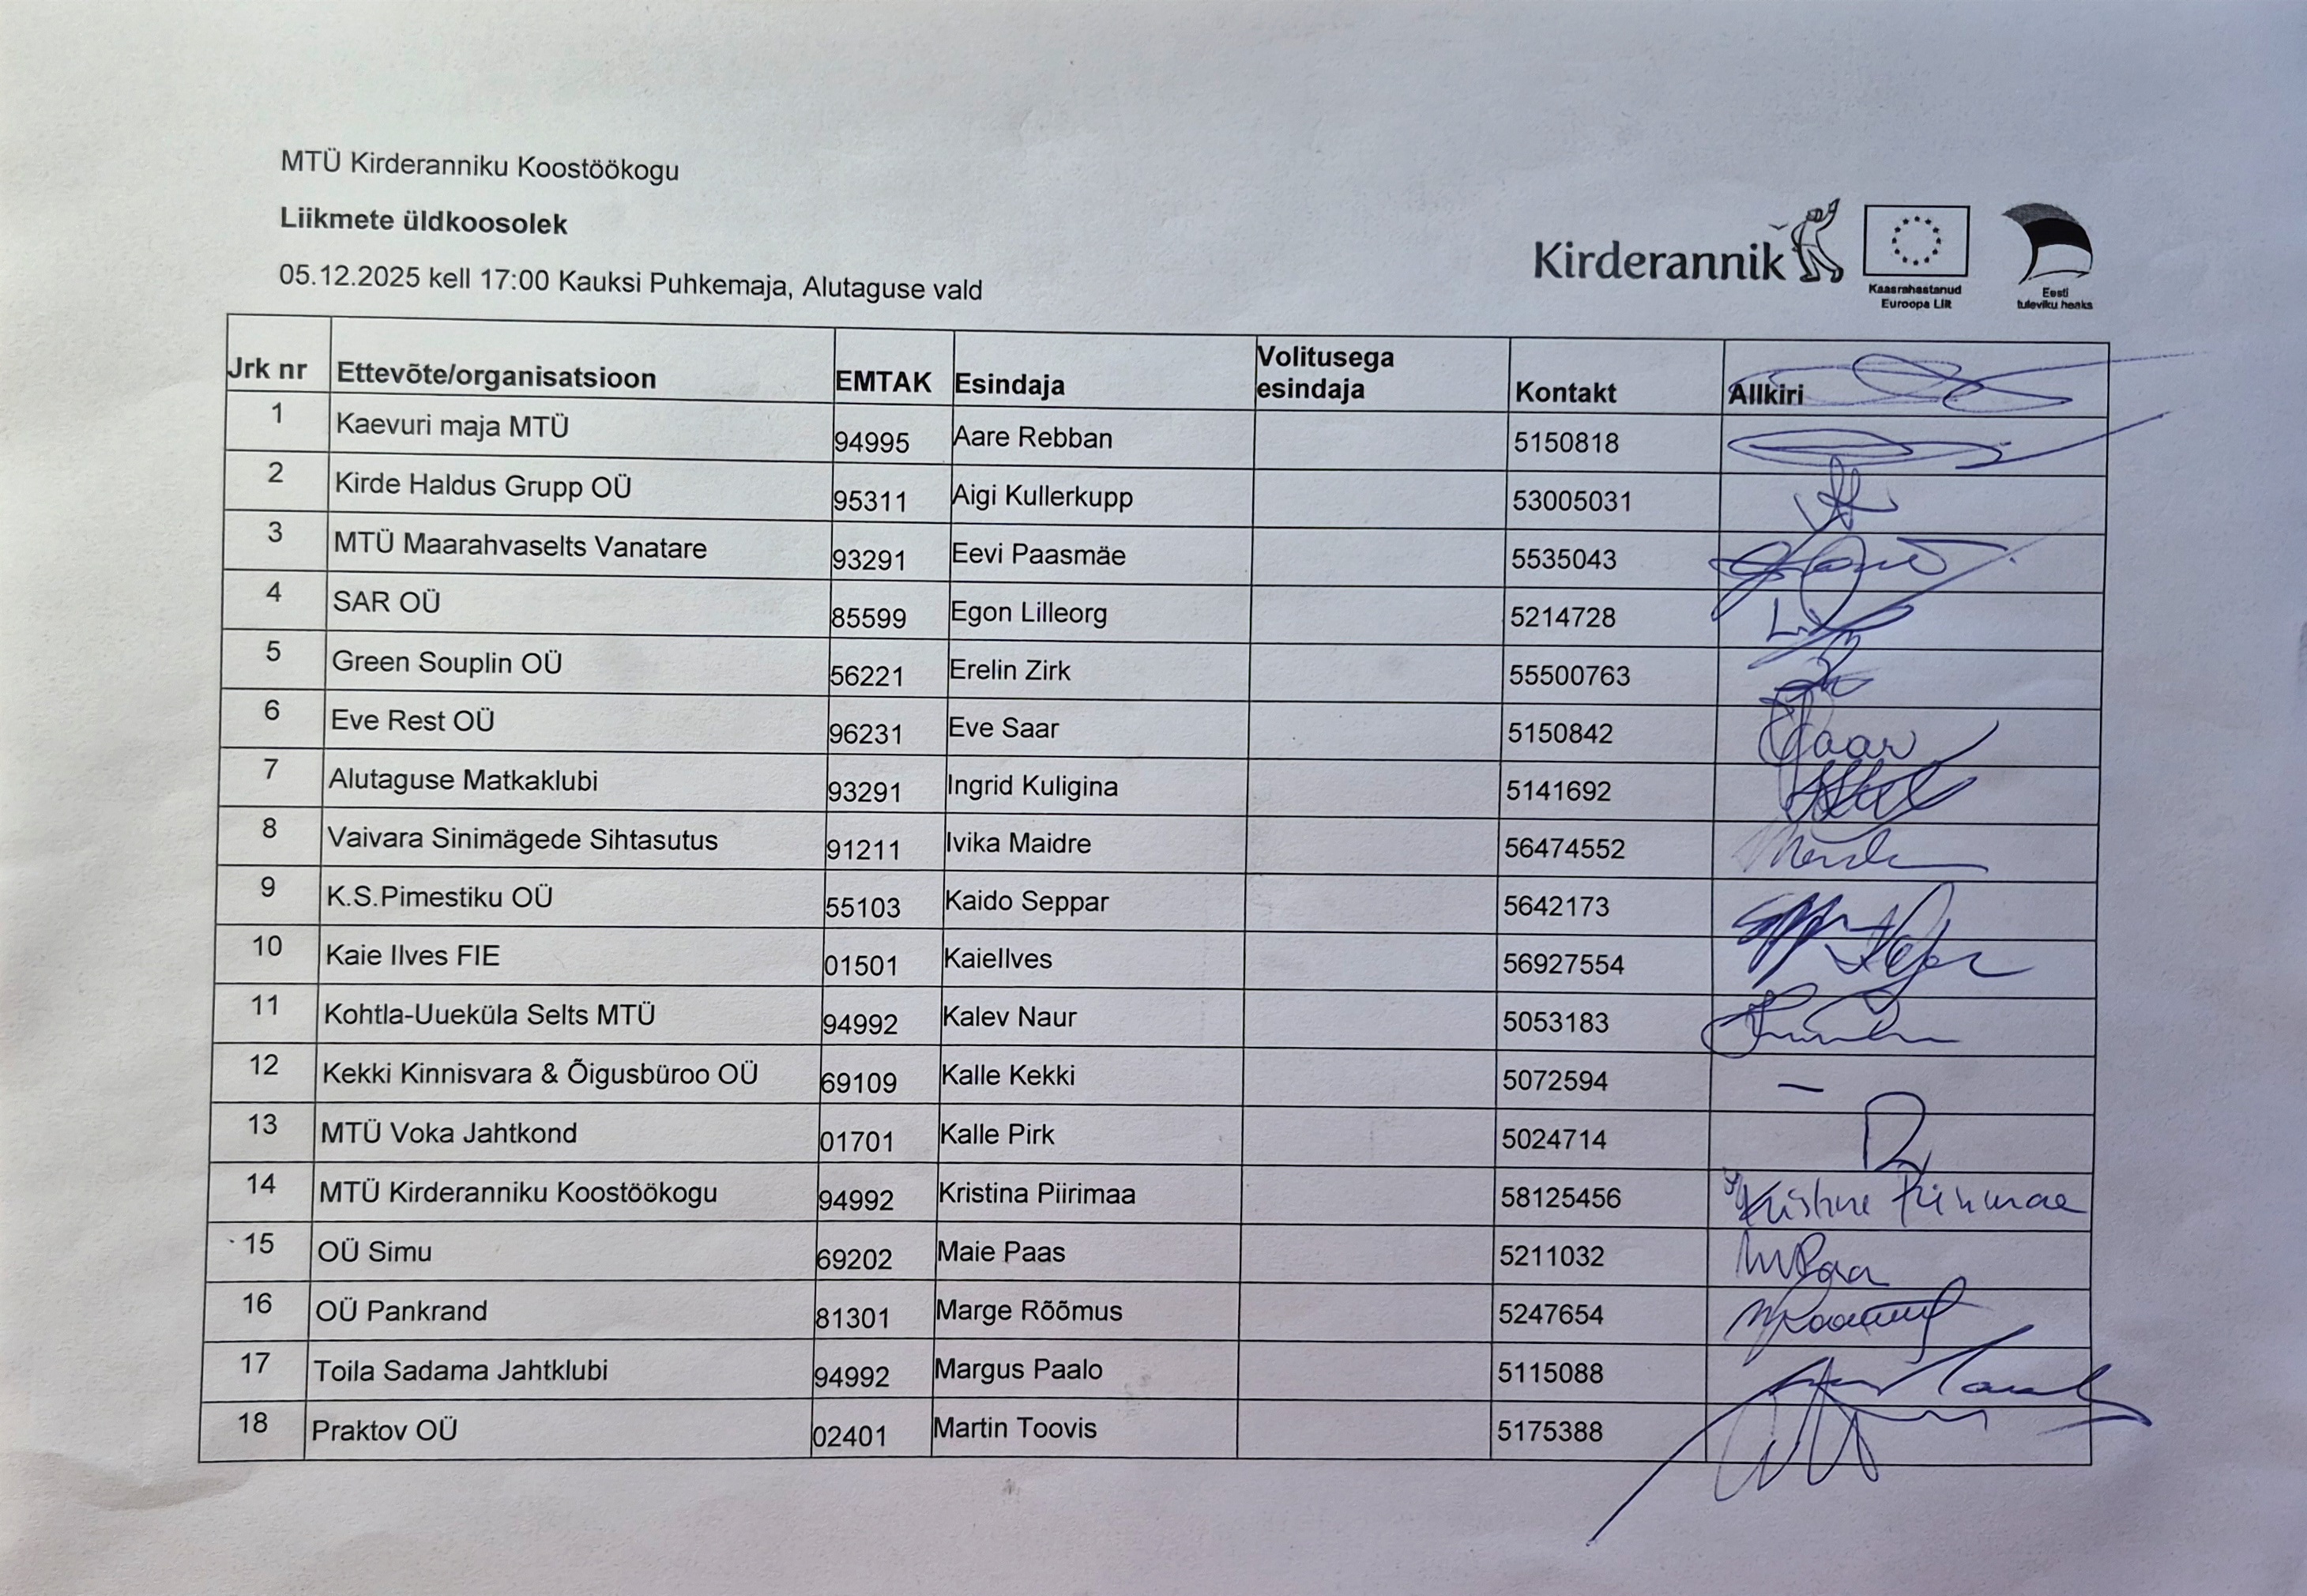 MTÜ Kirderanniku Koostöökogu
Liikmete üldkoosolek
05.12.2025 kell 17:00 Kauksi Puhkemaja, Alutaguse vald
Kirderannik
Kaasrahastanud
Euroopa Liit
Eesti
tuleviku heaks
Jrk nr Ettevõte/organisatsioon EMTAK Esindaja Volitusega esindaja Kontakt Allkiri
1 Kaevuri maja MTÜ 94995 Aare Rebban 5150818
2 Kirde Haldus Grupp OÜ 95311 Aigi Kullerkupp 53005031
3 MTÜ Maarahvaselts Vanatare 93291 Eevi Paasmäe 5535043
4 SAR OÜ 85599 Egon Lilleorg 5214728
5 Green Souplin OÜ 56221 Erelin Zirk 55500763
6 Eve Rest OÜ 96231 Eve Saar 5150842
7 Alutaguse Matkaklubi 93291 Ingrid Kuligina 5141692
8 Vaivara Sinimägede Sihtasutus 91211 Ivika Maidre 56474552
9 K.S.Pimestiku OÜ 55103 Kaido Seppar 5642173
10 Kaie Ilves FIE 01501 KaieIlves 56927554
11 Kohtla-Uueküla Selts MTÜ 94992 Kalev Naur 5053183
12 Kekki Kinnisvara & Õigusbüroo OÜ 69109 Kalle Kekki 5072594 –
13 MTÜ Voka Jahtkond 01701 Kalle Pirk 5024714
14 MTÜ Kirderanniku Koostöökogu 94992 Kristina Piirimaa 58125456
15 OÜ Simu 69202 Maie Paas 5211032
16 OÜ Pankrand 81301 Marge Rõõmus 5247654
17 Toila Sadama Jahtklubi 94992 Margus Paalo 5115088
18 Praktov OÜ 02401 Martin Toovis 5175388